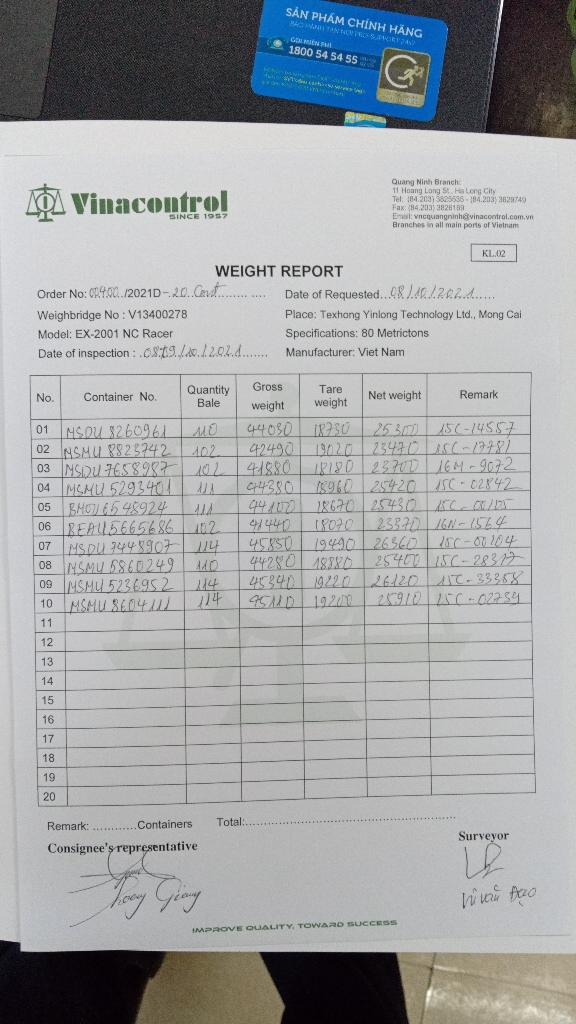 SẢN PHẨM CHÍNH HÃNG
BẢO HÀNH TẬN NƠI PRO-SUPPORT 24/7
GỌI MIỄN PHÍ
1800 54 54 55
Vinacontrol
SINCE 1957
Quang Ninh Branch:
11 Hoang Long St., Ha Long City
Tel: (84.203) 3825635 - (84.203) 3829749
Fax: (84.203) 3826189
Email: vncquangninh@vinacontrol.com.vn
Branches in all main ports of Vietnam
KL.02
WEIGHT REPORT
Order No: 00400 /2021D - 20 Cont
Date of Requested...08/10/2021.....
Weighbridge No : V13400278
Place: Texhong Yinlong Technology Ltd., Mong Cai
Model: EX-2001 NC Racer
Specifications: 80 Metrictons
Date of inspection : 08+9/10/2021
Manufacturer: Viet Nam
No. Container No. Quantity Bale Gross weight Tare weight Net weight Remark
01 MSDU 8260961 110 44030 18730 25300 15C-14557
02 MSMU 8823742 102 42490 19020 23470 15C-17781
03 MSDU 7658987 102 41880 18180 23700 16M-9072
04 MSMU 5293401 111 44380 18960 25420 15C-02842
05 BMOU 6548924 111 44100 18670 25430 15C-00105
06 BEAU 5665686 102 41440 18070 23370 16N-1564
07 MSDU 7448907 114 45850 19490 26360 15C-00104
08 MSMU 5860249 110 44280 18880 25400 15C-28317
09 MSMU 5236952 114 45340 19220 26120 15C-33358
10 MSMU 8604111 114 45110 19200 25910 15C-02739
11
12
13
14
15
16
17
18
19
20
Remark: ............Containers Total:......................................................
Consignee's representative
Surveyor
Hoang Giang
Vũ văn Đạo
IMPROVE QUALITY, TOWARD SUCCESS